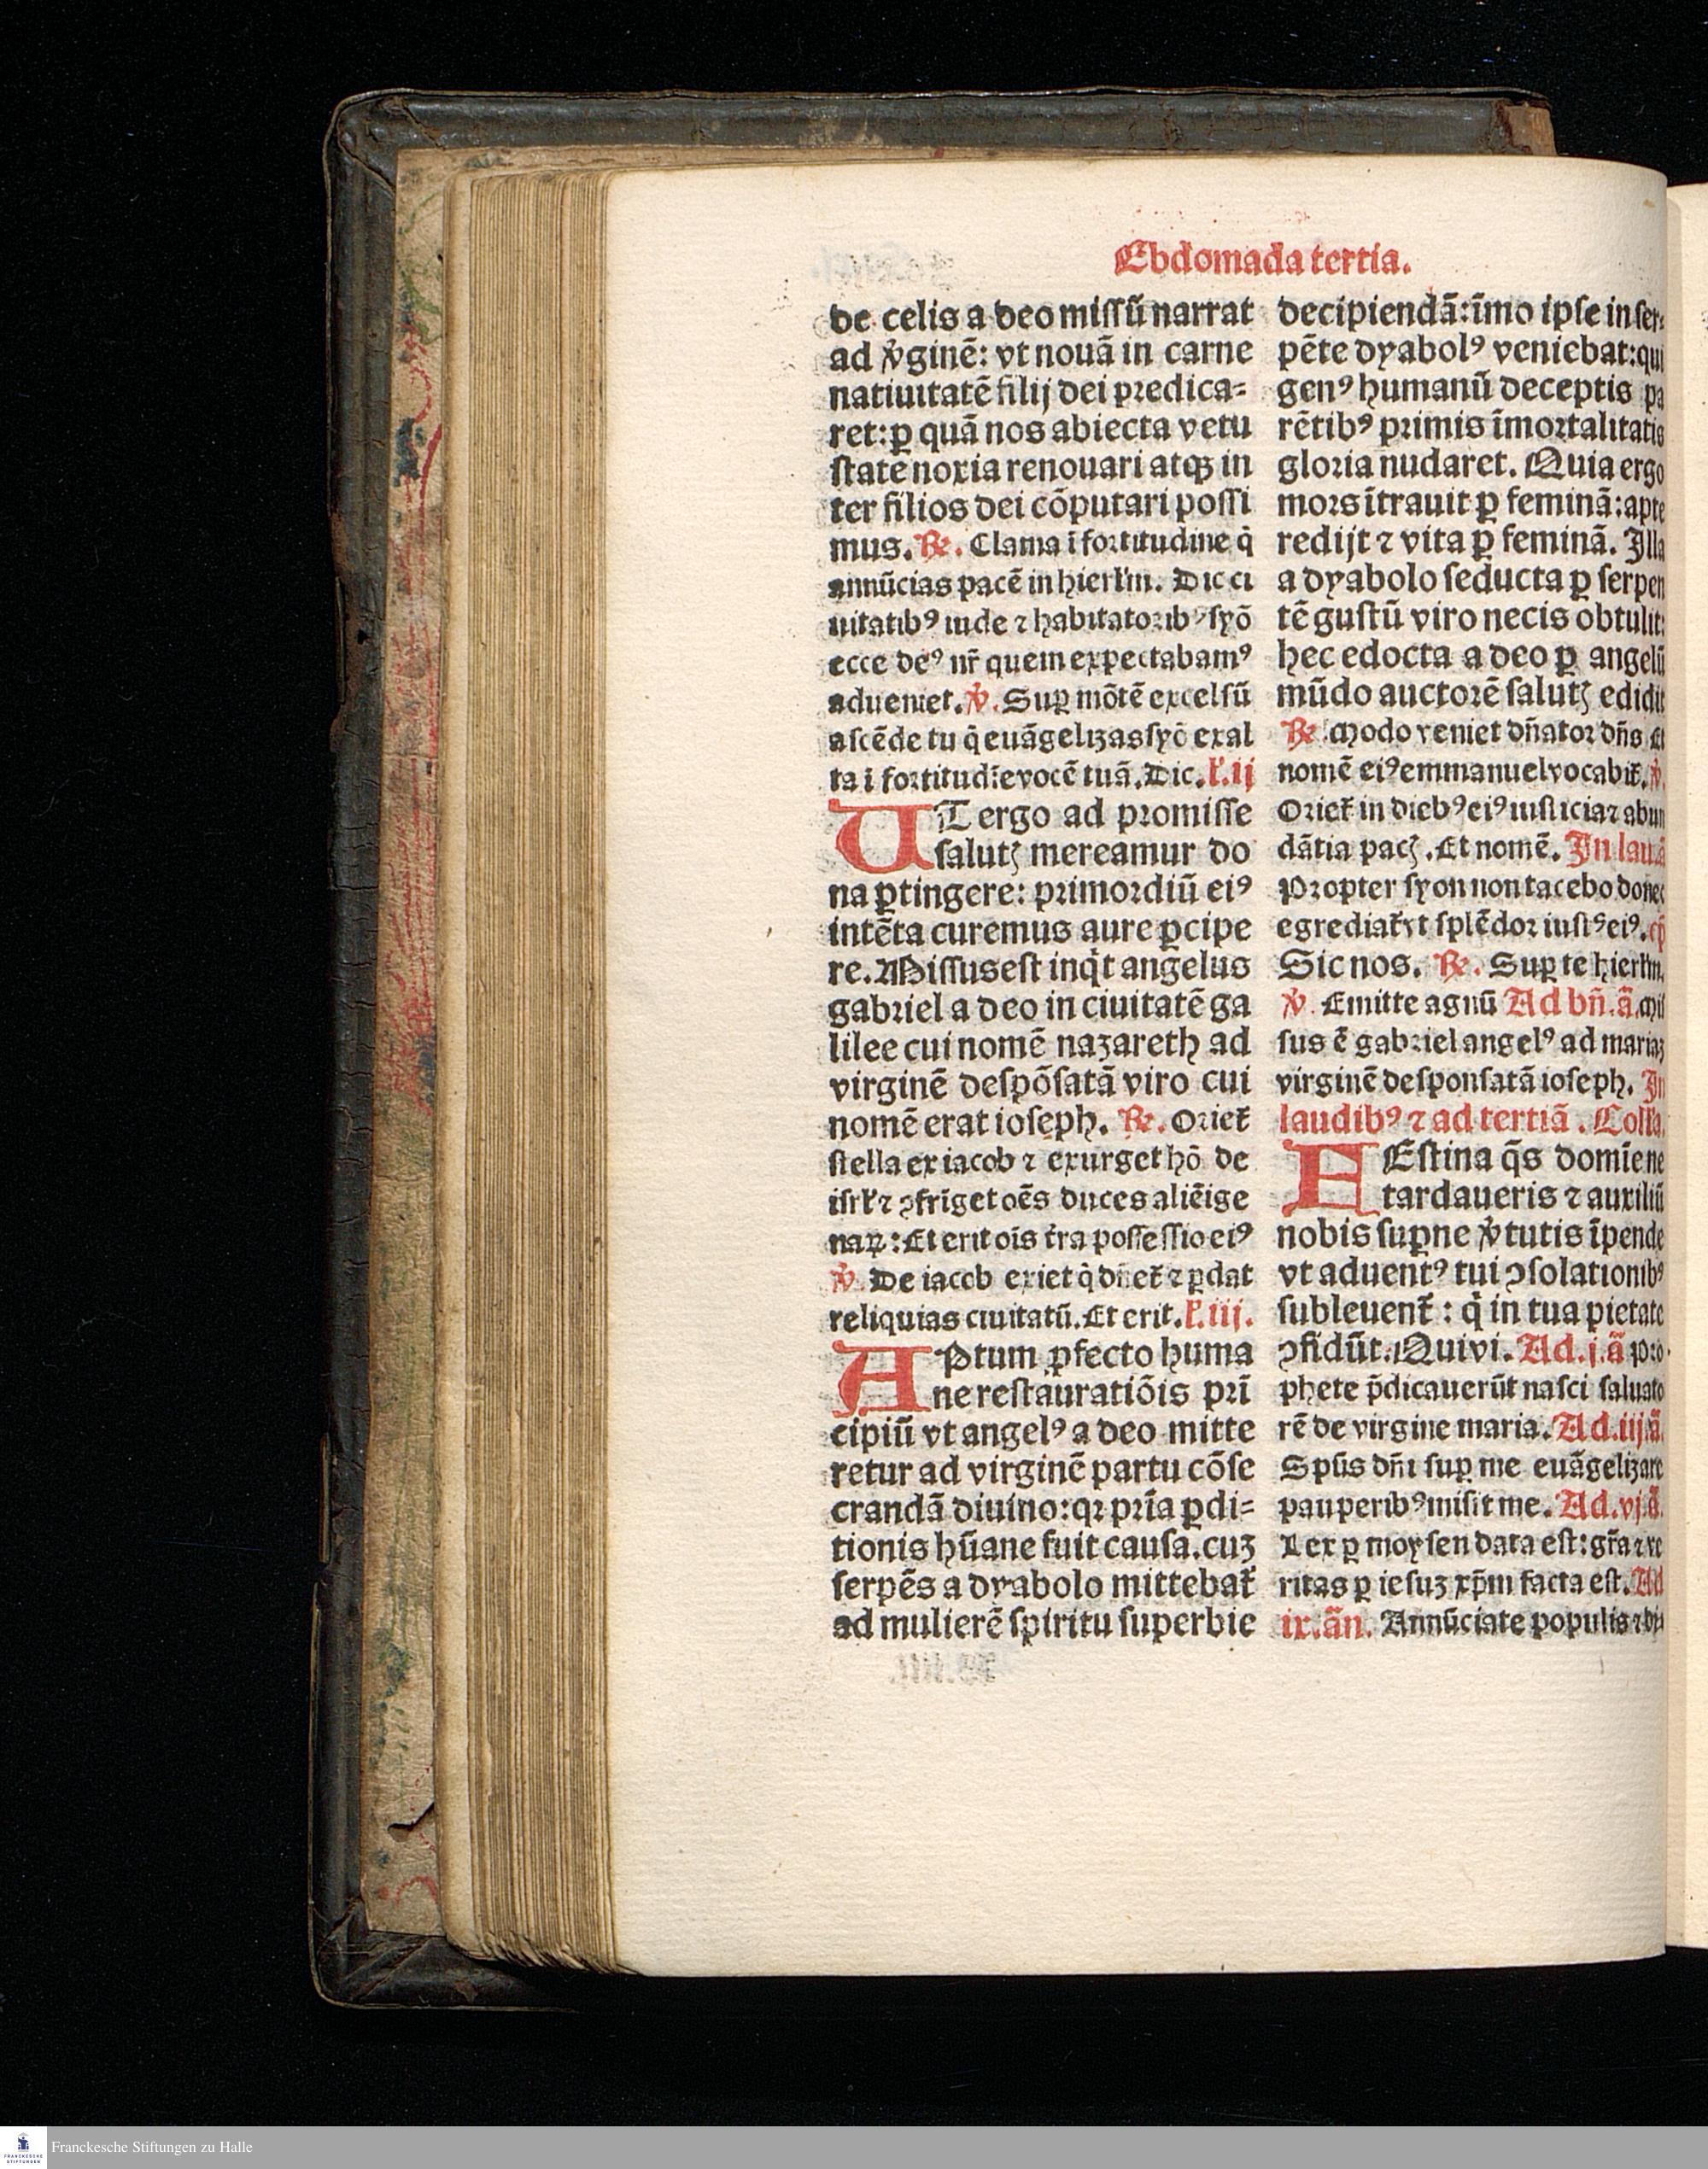 Ebdomada tertia.
de celis a deo missũ narrat
ad v̾ginẽ: vt nouã in carne
natiuitatẽ filij dei predica-
ret: ꝑ quã nos abiecta vetu
state noxia renouari atqꝫ in
ter filios dei cõputari possi
mus. ℞. Clama ĩ fortitudine q̇
annũcias pacẽ in hierl'm. Dic ci
uitatibꝰ iude ⁊ habitatoribꝰ syõ
ecce deꝰ nr̃ quem expectabamꝰ
adueniet. ℣. Suꝑ mõtẽ excelsũ
ascẽde tu q̇ euãgelizas syõ exal
ta ĩ fortitudĩe vocẽ tuã. Dic. l'. ij
UT ergo ad promisse
salutꝭ mereamur do
na ꝑtingere: primordiũ eiꝰ
intẽta curemus aure ꝑcipe
re. Missus est inq̇t angelus
gabriel a deo in ciuitatẽ ga
lilee cui nomẽ nazareth ad
virginẽ despõsatã viro cui
nomẽ erat ioseph. ℞. Oriet̃
stella ex iacob ⁊ exurget hõ de
isrl' ⁊ ꝯfrĩget oẽs duces aliẽige
naꝝ: Et erit oĩs t̃ra possessio eiꝰ
℣. De iacob exiet q̇ dñet̃ ⁊ ꝑdat
reliquias ciuitatũ. Et erit. l'. iij.
APtum ꝓfecto huma
ne restauratiõis prĩ
cipiũ vt angelꝰ a deo mitte
retur ad virginẽ partu cõse
crandã diuino: qꝛ prĩa ꝑdi-
tionis hũane fuit causa. cuꝫ
serpẽs a dyabolo mittebat̃
ad mulierẽ spiritu superbie
decipiendã: ĩmo ipse in ser-
pẽte dyabolꝰ veniebat: qui
genꝰ humanũ deceptis pa
rẽtibꝰ primis ĩmortalitatis
gloria nudaret. Quia ergo
mors ĩtrauit ꝑ feminã: apte
redijt ⁊ vita ꝑ feminã. Illa
a dyabolo seducta ꝑ serpen
tẽ gustũ viro necis obtulit:
hec edocta a deo ꝑ angelũ
mũdo auctorẽ salutꝭ edidit
℞ Modo veniet dñator dñs Et
nomẽ eiꝰ emmanuel vocabit̃. ℣.
Oriet̃ in diebꝰ eiꝰ iusticia ⁊ abun
dãtia pacꝭ. Et nomẽ. In lau. ã
Propter syon non tacebo donec
egrediat̃ vt splẽdor iustꝰ eiꝰ. cp̃
Sic nos. ℞. Suꝑ te hierl'm.
℣. Emitte agnũ Ad bñ. ã. Mis
sus ẽ gabriel angelꝰ ad mariaꝫ
virginẽ desponsatã ioseph. In
laudibꝰ ⁊ ad tertiã. Colla.
FEstina q̃s domĩe ne
tardaueris ⁊ auxiliũ
nobis suꝑne v̾tutis ĩpende
vt aduentꝰ tui ꝯsolationibꝰ
subleuent̃: q̇ in tua pietate
ꝯfidũt. Qui vi. Ad. j. ã Pro
phete p̃dicauerũt nasci saluato
rẽ de virgine maria. Ad. iij. ã.
Spũs dñi suꝑ me euãgelizare
pauperibꝰ misit me. Ad. vj. ã.
Lex ꝑ moysen data est: gr̃a ⁊ ve
ritas ꝑ iesuꝫ xp̃m facta est. Ad
ix. ãn. Annũciate populis ⁊
Franckesche Stiftungen zu Halle